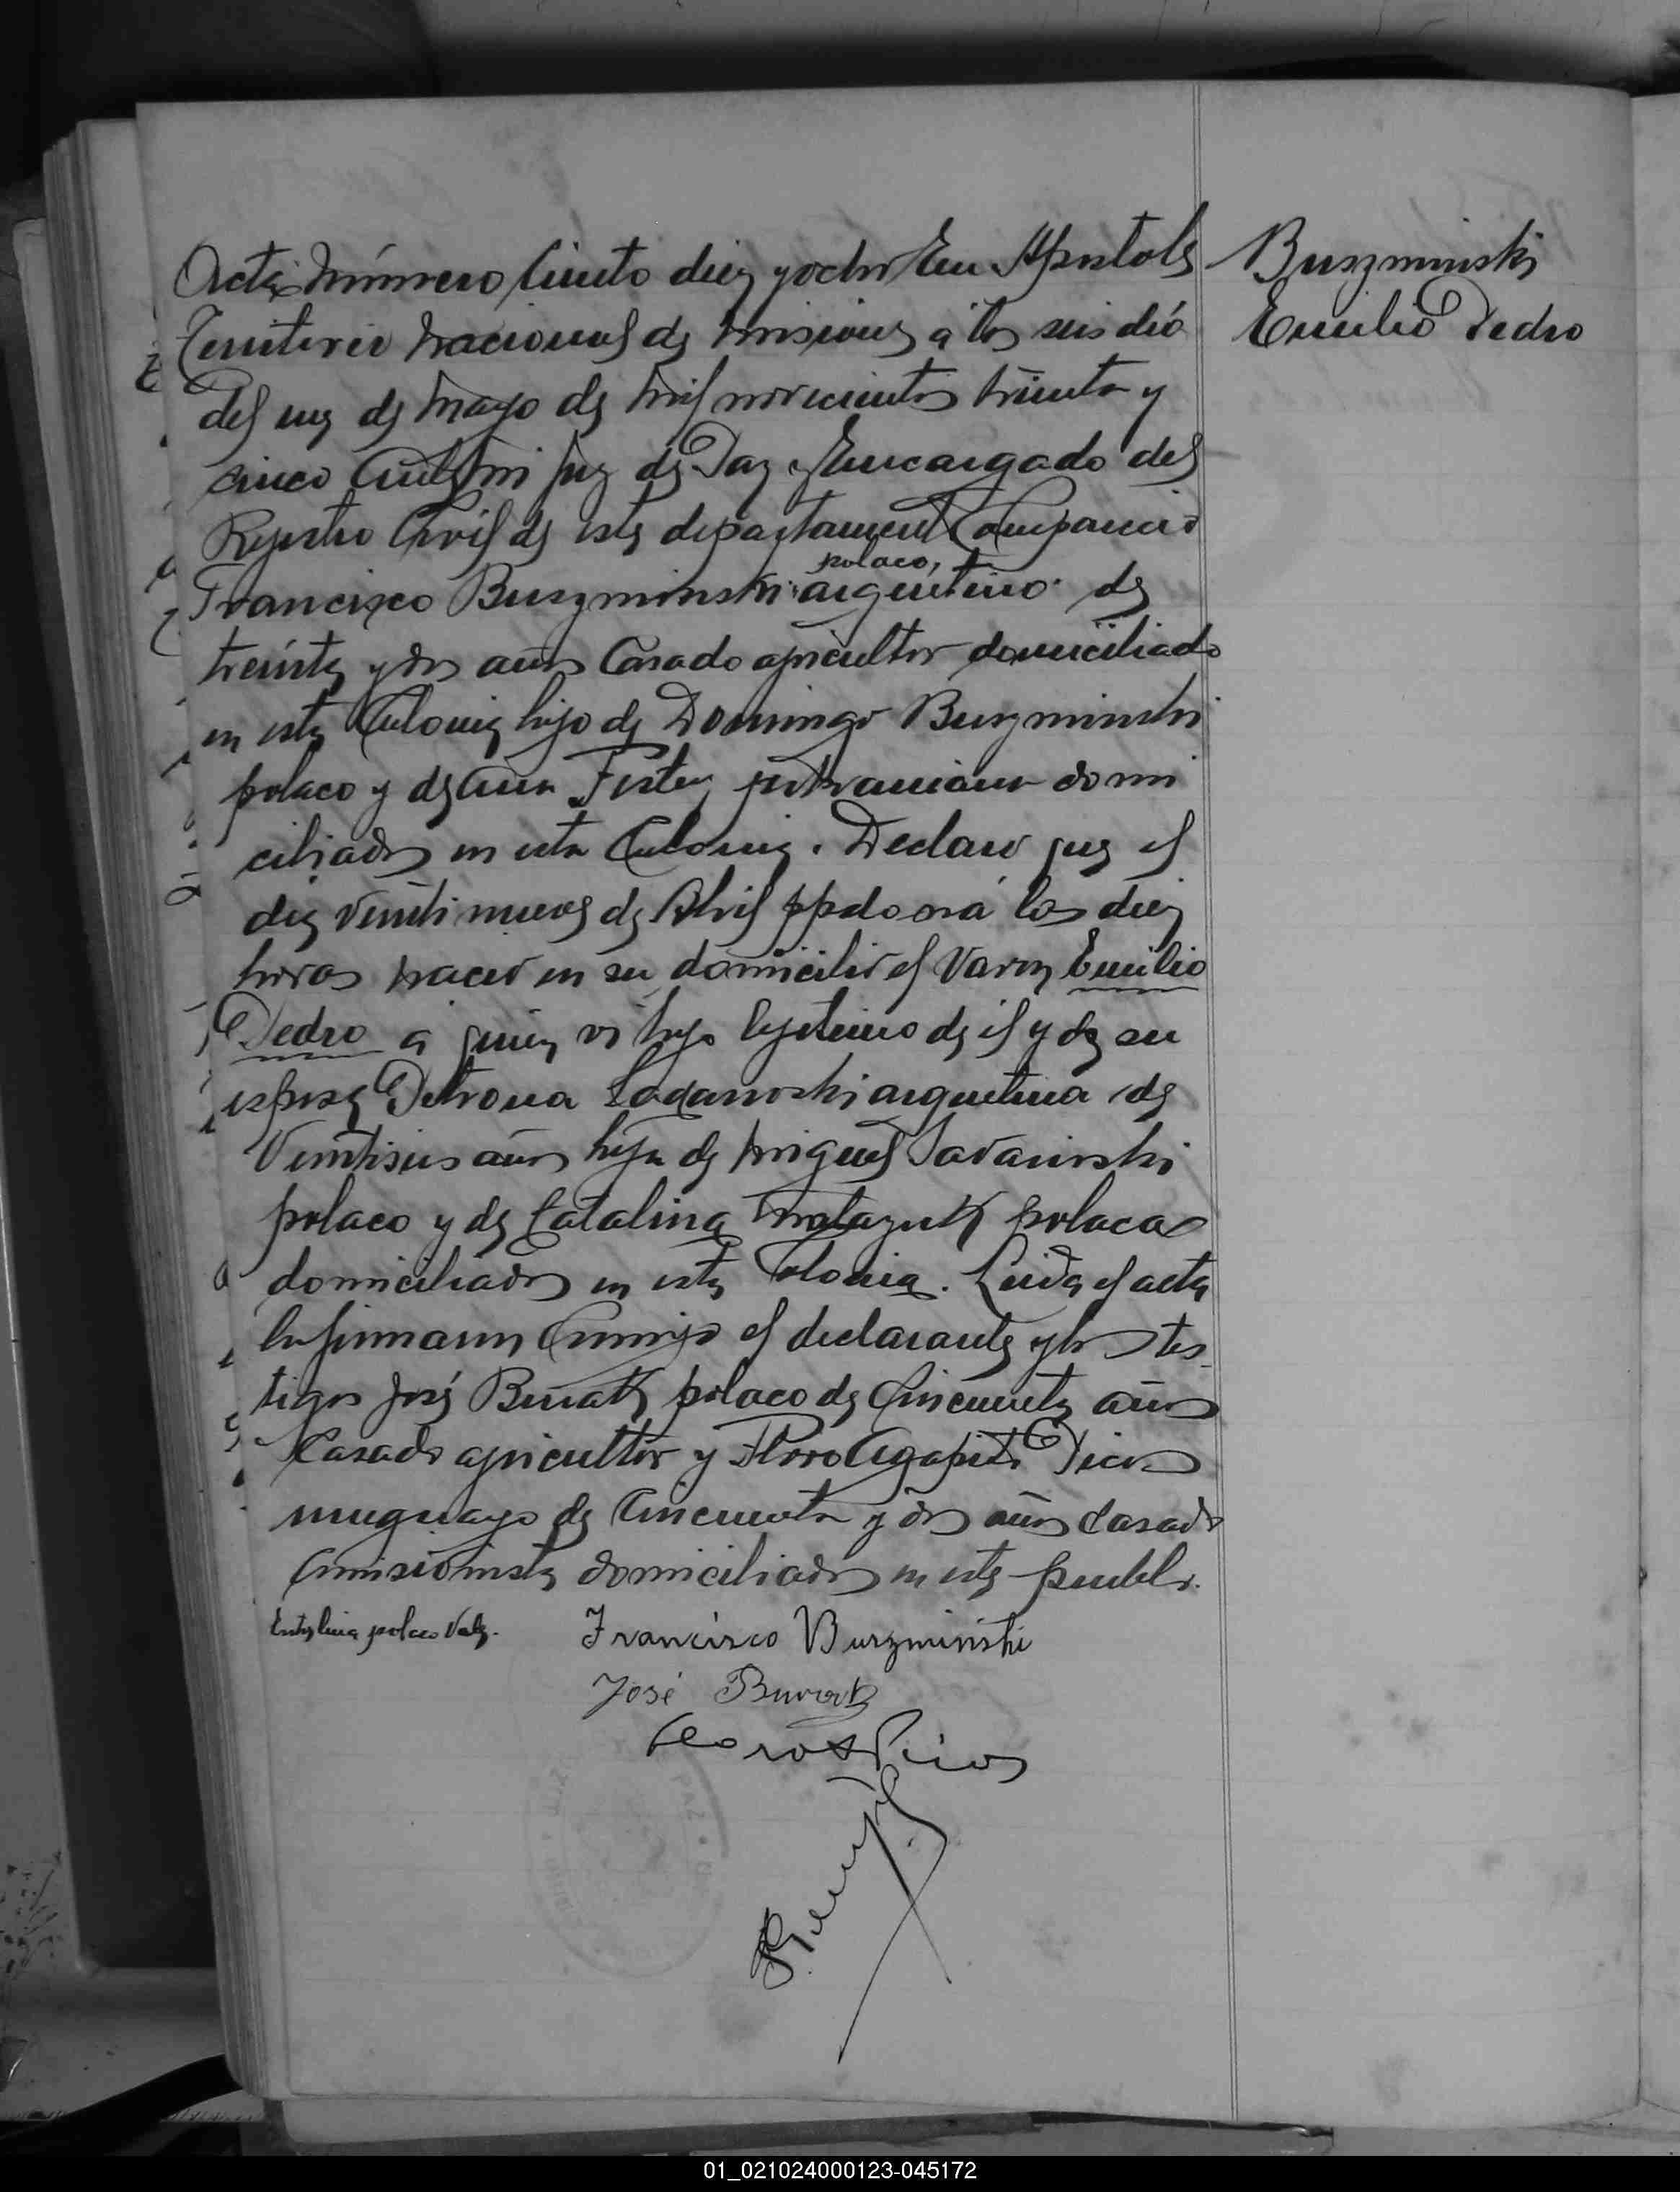 Acta Número Ciento diez y ocho En Apostoles
Territorio Nacional de Misiones a los seis dias
del mes de Mayo de Mil novecientos treinta y
cinco Ante mi Juez de Paz y Encargado del
Registro Civil de este departamento Comparecio
polaco,
Francisco Buszminski argentino de
treinta y dos años Casado agricultor domiciliado
en esta Colonia hijo de Domingo Buszminski
polaco y de Ana domi
ciliados en esta Colonia. Declaro que el
dia veintinueve de Abril ppdo a las diez
horas nacio en su domicilio el Varon Emilio
Pedro a quien vi hijo lejitimo de el y de su
esposa Petrona argentina de
Veintiseis años hija de Miguel
polaco y de Catalina polaca
domiciliados en esta Colonia. Leida el acta
la firmaron Conmigo el declarante y los tes-
tigos José polaco de Cincuenta años
Casado agricultor y Floro Agapito Picos
uruguayo de Cincuenta y dos años Casado
Comisionista domiciliados en este pueblo.
Entrelinea polaco Vale.
Francisco Buszminski
José
Buszminski
Emilio Pedro
01_021024000123-045172